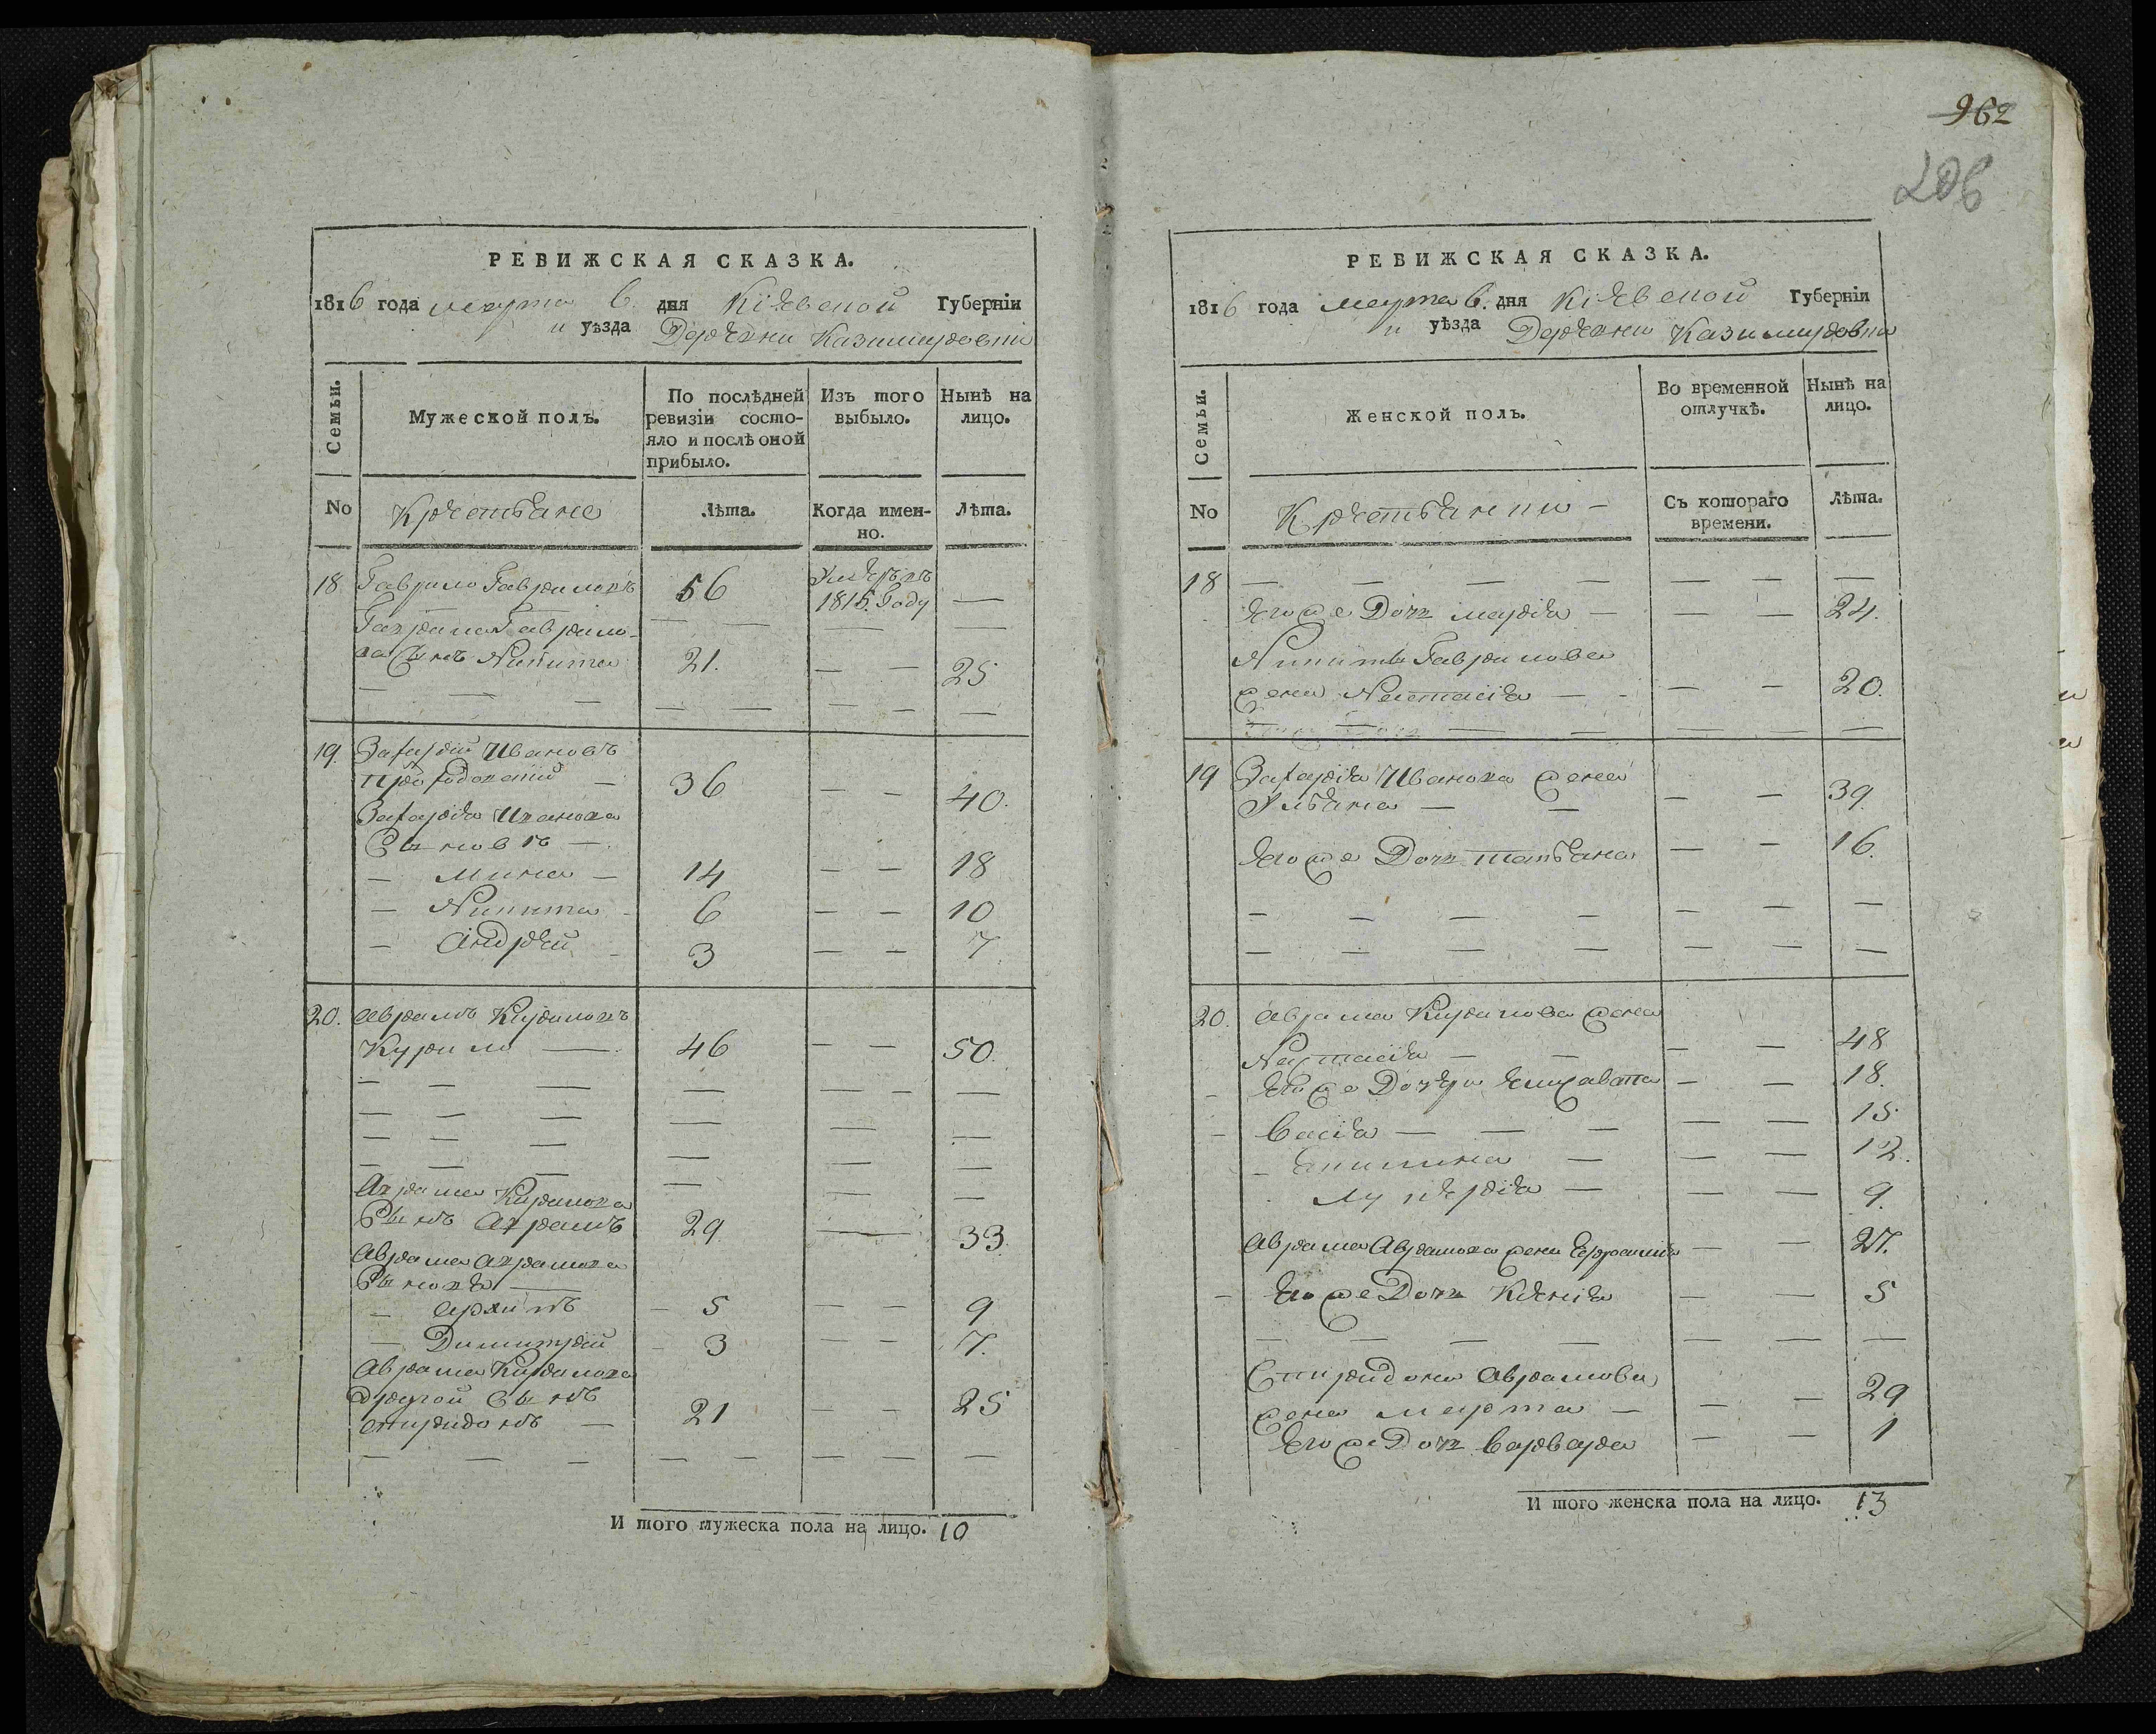 РЕВИЖСКАЯ СКАЗКА.
1816 года марта 6. дня Кіевской Губерніи
и уѣзда Деревни Казимировки
Семьи.
Мужеской полъ.
По послѣдней ревизіи состо-
яло и послѣ оной
прибыло.
Изъ того
выбыло.
Нынѣ на
лицо.
No Крестьяне Лѣта. Когда имен-
но. Лѣта.
18 Гаврило Гавриловъ 56 Умеръ въ
1815. Году —
Гаврила Гаврило-
ва Сынъ Никита 21. — — 25
19. Захарій Ивановъ
36 — — 40.
Захарія Иванова
Сыновъя —
— Мина — 14 — — 18
— Никита 6 — — 10
— Андрей 3 — — 7
20. Аврамъ Кириловъ
Курило — 46 — — 50.
Аврама Кирилова
Сынъ Аврамъ 29. — 33.
Аврама Аврамова
Сыновя —
— Архипъ — 5 — — 9
— Димитрій — 3 — — 7.
Аврама Кирилова
другой Сынъ
спиридонъ — 21 — — 25
И того мужеска пола на лицо. 10
962
206
РЕВИЖСКАЯ СКАЗКА.
1816 года марта 6. дня Кіевской Губерніи
и уѣзда Деревни Казимировки
Семьи.
Женской полъ.
Во временной
отлучкѣ.
Нынѣ на
лицо.
No Крестьянки — Съ котораго
времени. Лѣта.
18 — — — — — — —
Егоже Дочь марія — — — 24.
Никиты Гаврилова
жена Настасія — — — 20.
19 Захарія Иванова жена
Уляна — — — — 39.
Егоже Дочь татьяна — — 16.
20. Аврама Кирилова жена
Настасія — — — — 48
Егоже Дочери Елисавета — — 18.
— Васія — — — — — 15
— Акилина — — — 12.
Лукерія — — — 9.
Аврама Аврамова жена — — 27.
— Егоже Дочь Ксенія — — 5
Спиридона Аврамова
жена марта — — — 29
Егоже Дочь варвара — — 1
И того женска пола на лицо. 13